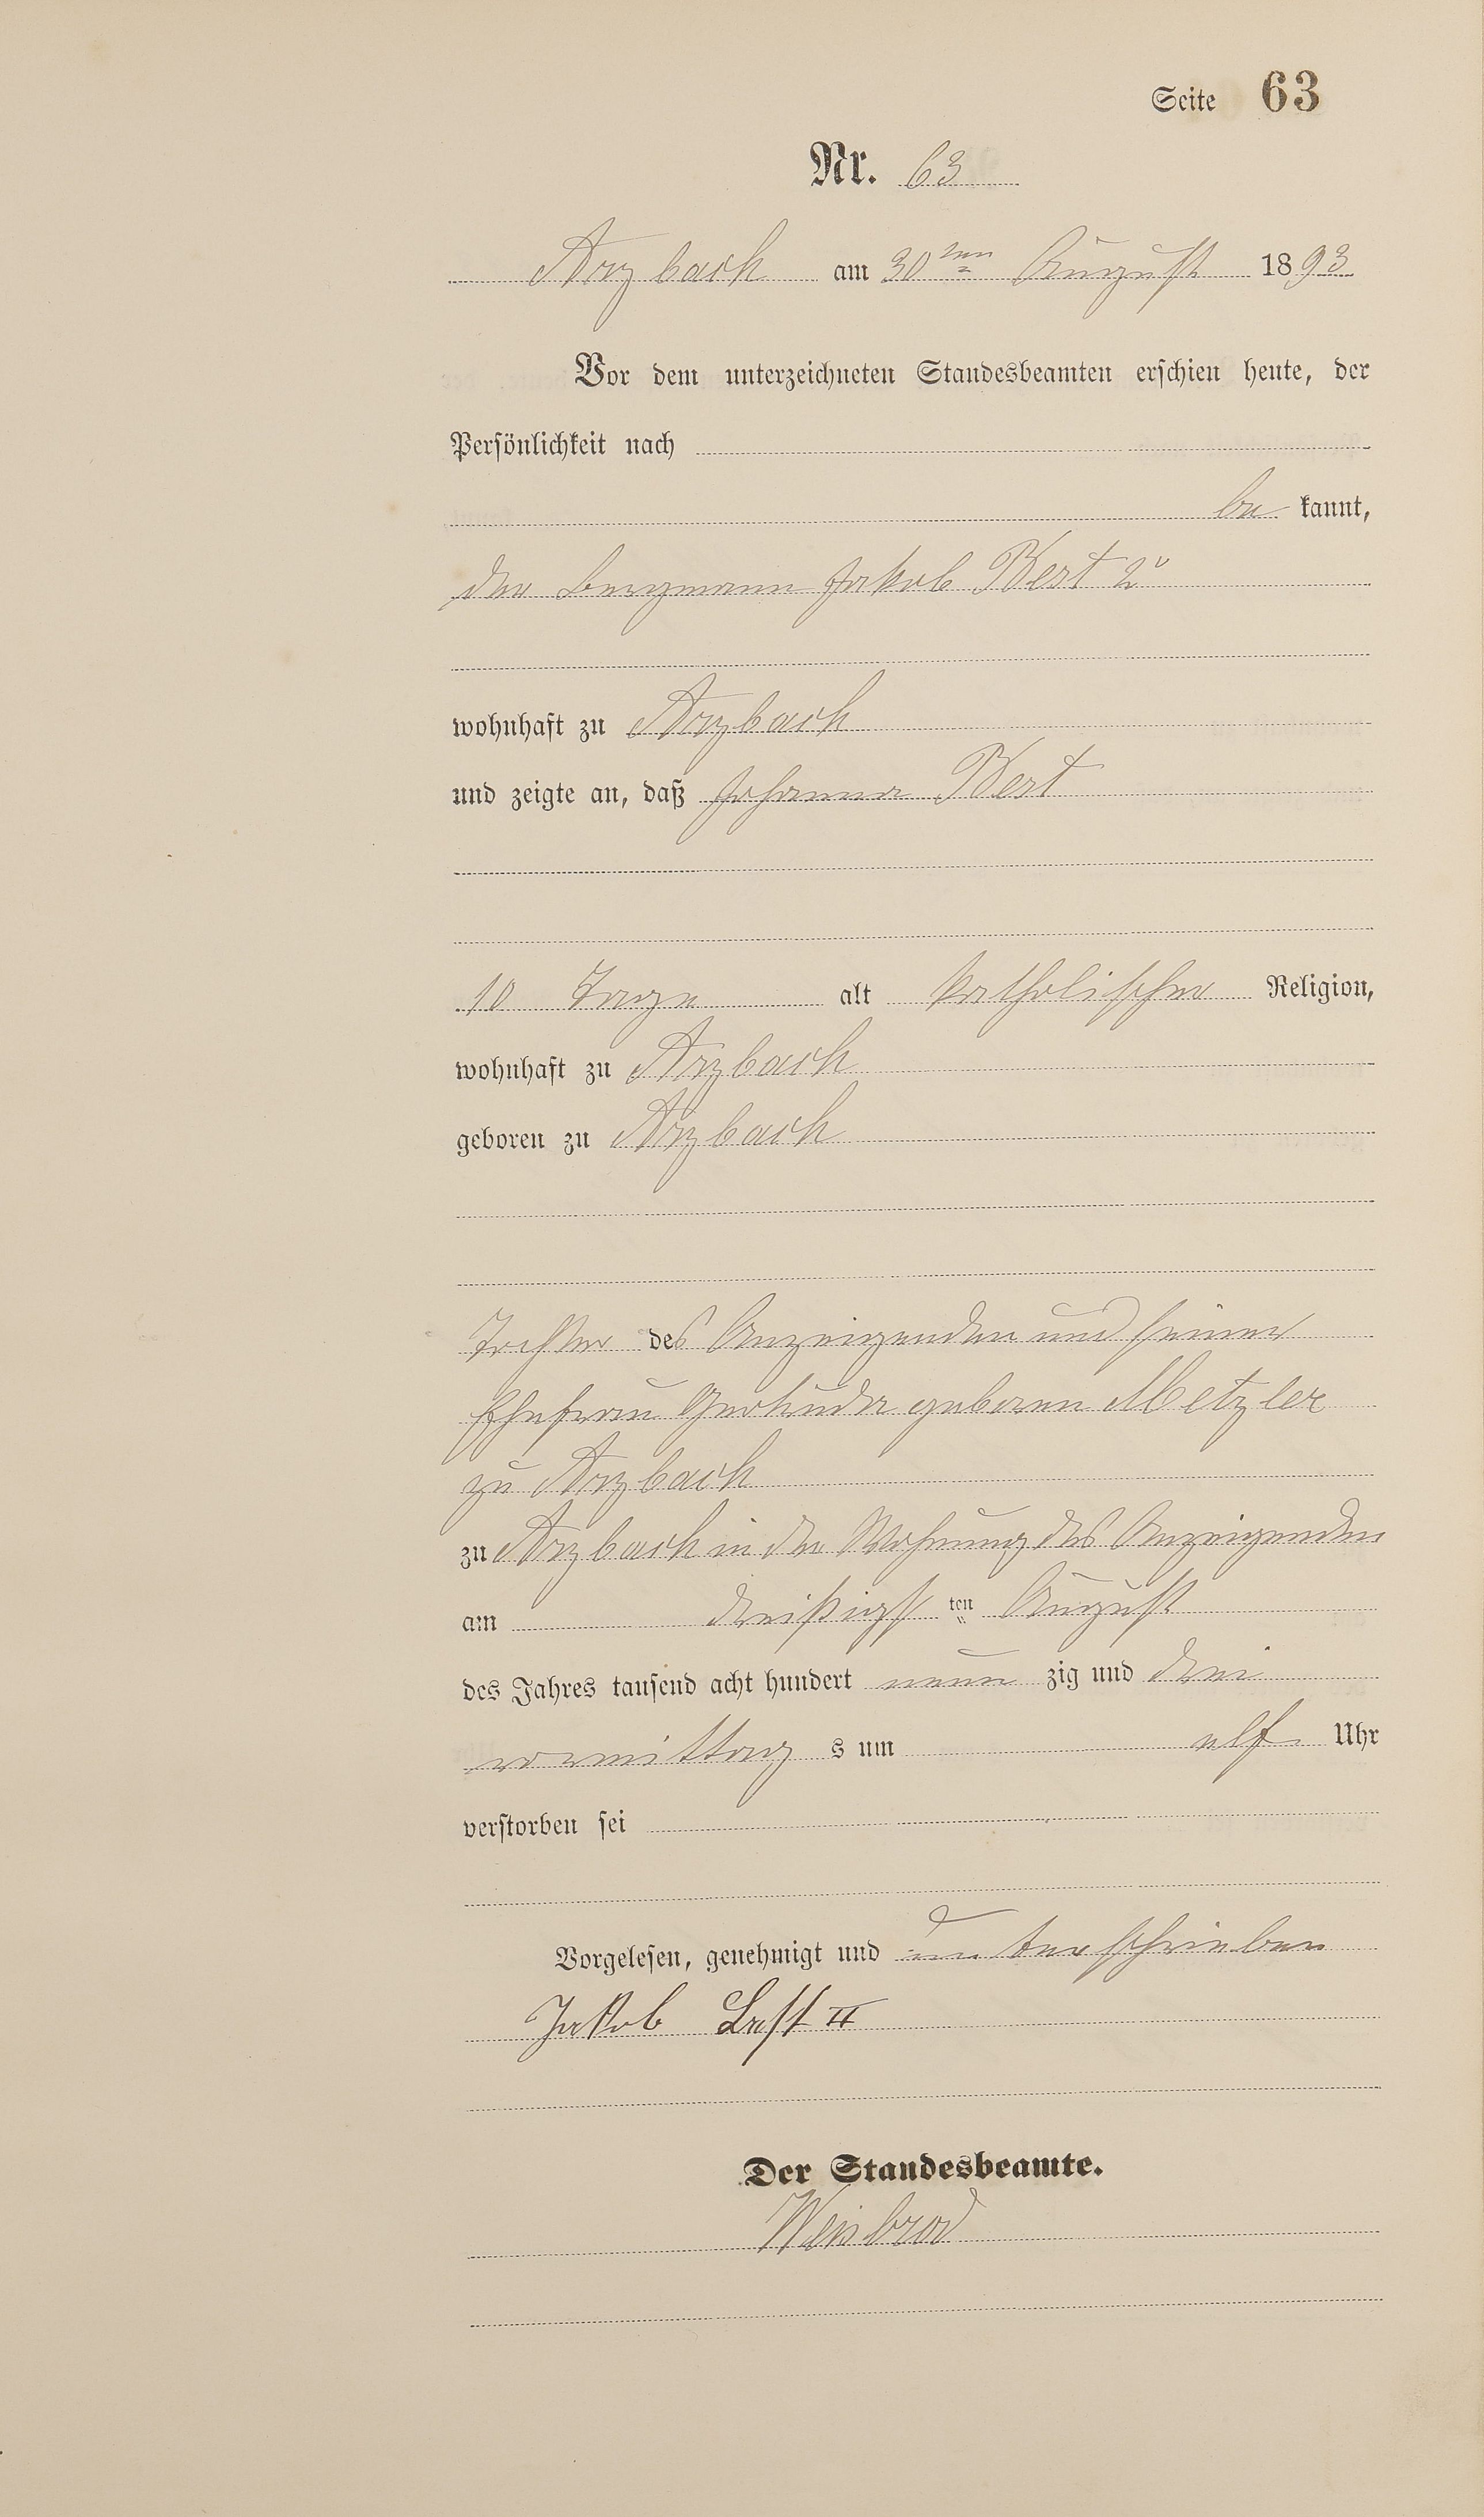 Seite 63
Nr. 63
Arzbach am 30ten August 1893
Vor dem unterzeichneten Standesbeamten erschien heute, der
Persönlichkeit nach
be kannt,
der Bergmann Jakob Best 2r
wohnhaft zu Arzbach
und zeigte an, daß Johanna Best
10 Tage alt katholischer Religion,
wohnhaft zu Arzbach
geboren zu Arzbach
Tochter des Anzeigenden und seiner
Ehefrau Gertrude geboren Metzler
zu Arzbach
zu Arzbach in der Wohnung des Anzeigenden
am dreißigsten August
des Jahres tausend acht hundert neun zig und drei
vormittag s um elf Uhr
verstorben sei
Vorgelesen, genehmigt und unterschrieben
Jakob Best II
Der Standesbeamte.
Weisbrod